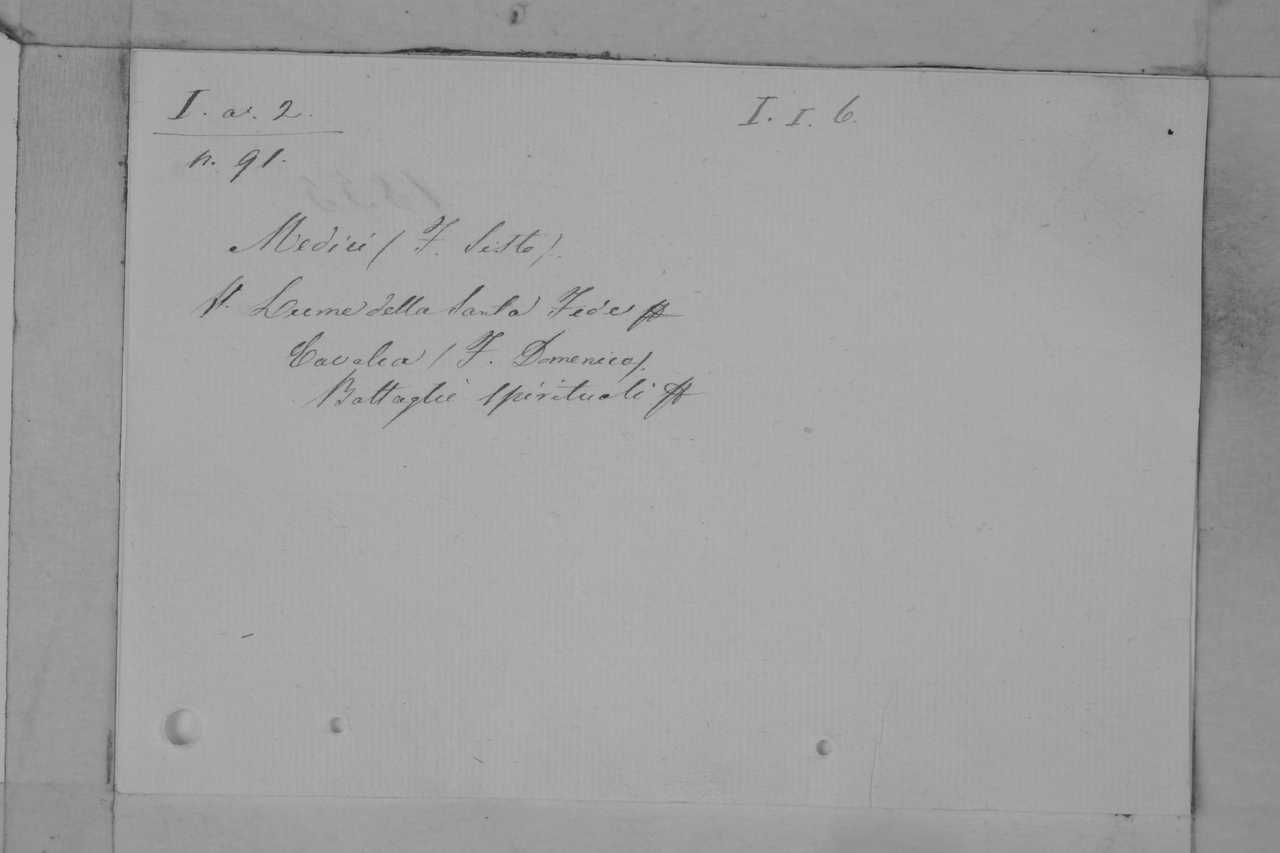 I. a. 2.
I. I. 6.
n. 91.
Medici (F. Sisto).
V. Lume della Santa Fede
Cavalca (F. Domenico).
Battaglie spirituali